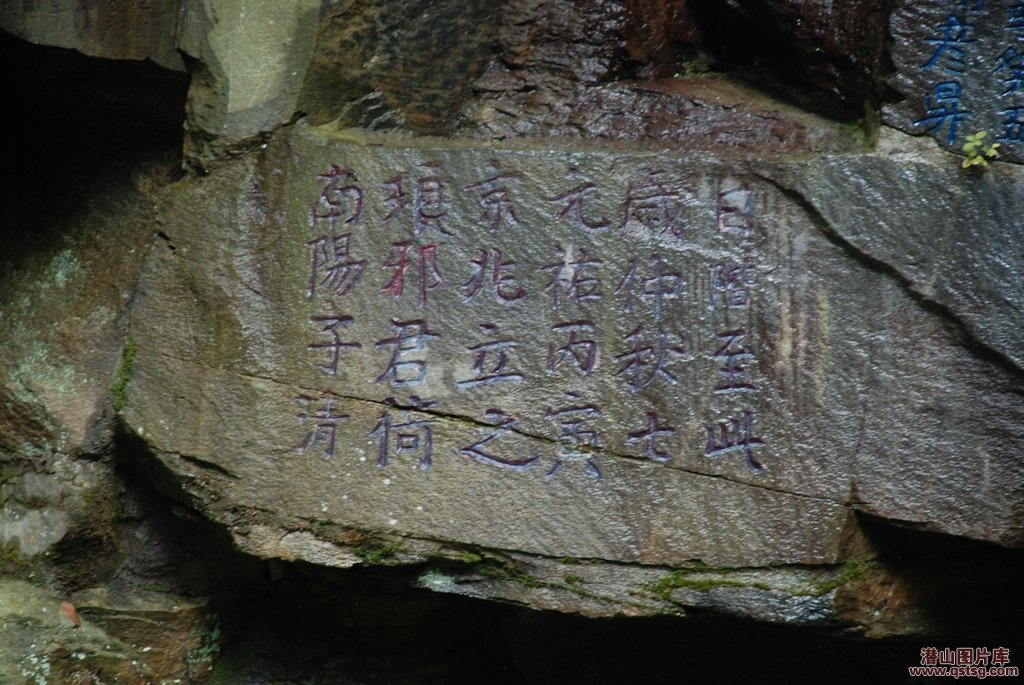 南陽子清
琅邪君倚
京兆立之
元祐丙寅
歲仲秋七
日偕至此
彦昇
潜山图片库
www.qstsg.com